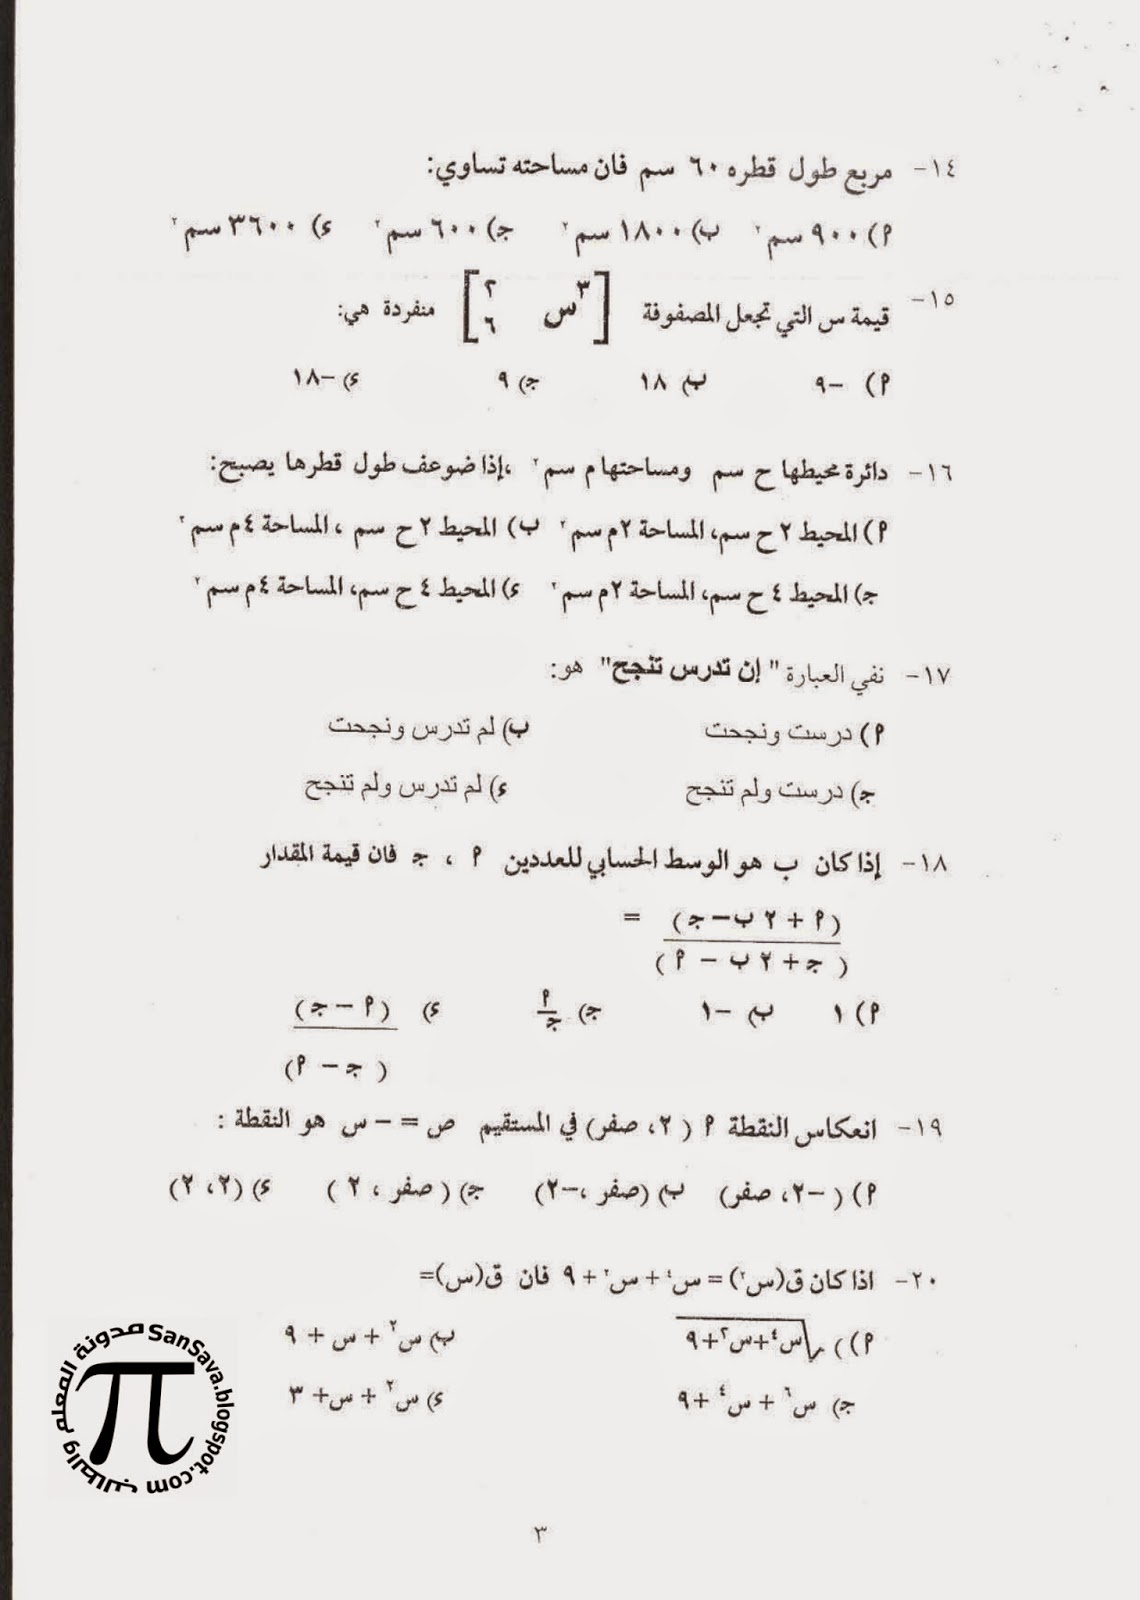 ١٤- مربع طول قطره ٦٠ سم فان مساحته تساوي:
أ) ٩٠٠ سم٢ ب) ١٨٠٠ سم٢ ج) ٦٠٠ سم٢ ء) ٣٦٠٠ سم٢
١٥- قيمة س التي تجعل المصفوفة [٣س ٢
٦] منفردة هي:
أ) -٩ ب) ١٨ ج) ٩ ء) -١٨
١٦- دائرة محيطها ح سم ومساحتها م سم٢ ،إذا ضوعف طول قطرها يصبح:
أ) المحيط ٢ ح سم، المساحة ٢م سم٢ ب) المحيط ٢ ح سم ، المساحة ٤م سم٢
ج) المحيط ٤ ح سم، المساحة ٢م سم٢ ء) المحيط ٤ ح سم، المساحة ٤م سم٢
١٧- نفي العبارة " إن تدرس تنجح" هو:
أ) درست ونجحت ب) لم تدرس ونجحت
ج) درست ولم تنجح ء) لم تدرس ولم تنجح
١٨- إذا كان ب هو الوسط الحسابي للعددين أ ، ج فان قيمة المقدار
(أ + ٢ ب - ج) =
(ج + ٢ ب - أ)
أ) ١ ب) -١ ج) أ/ج ء) (أ - ج)
(ج - أ)
١٩- انعكاس النقطة أ (٢، صفر) في المستقيم ص = - س هو النقطة :
أ) (-٢، صفر) ب) (صفر ،-٢) ج) (صفر ، ٢) ء) (٢، ٢)
٢٠- اذا كان ق(س٢) = س٤ + س٢ + ٩ فان ق(س)=
أ) √(س٤+س٢+٩) ب) س٢ + س + ٩
ج) س٦ + س٤ + ٩ ء) س٢ + س + ٣
مدونة المعلم والطالب SanSava.blogspot.com
π
٣